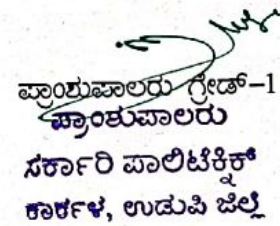 ಪ್ರಾಂಶುಪಾಲರು ಗ್ರೇಡ್-1
ಪ್ರಾಂಶುಪಾಲರು
ಸರ್ಕಾರಿ ಪಾಲಿಟೆಕ್ನಿಕ್
ಕಾರ್ಕಳ, ಉಡುಪಿ ಜಿಲ್ಲೆ